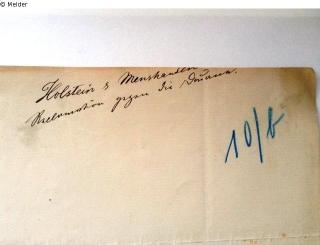 © Melder
Holstein & Menshausen
Reclamation gegen die Douane.
10/6